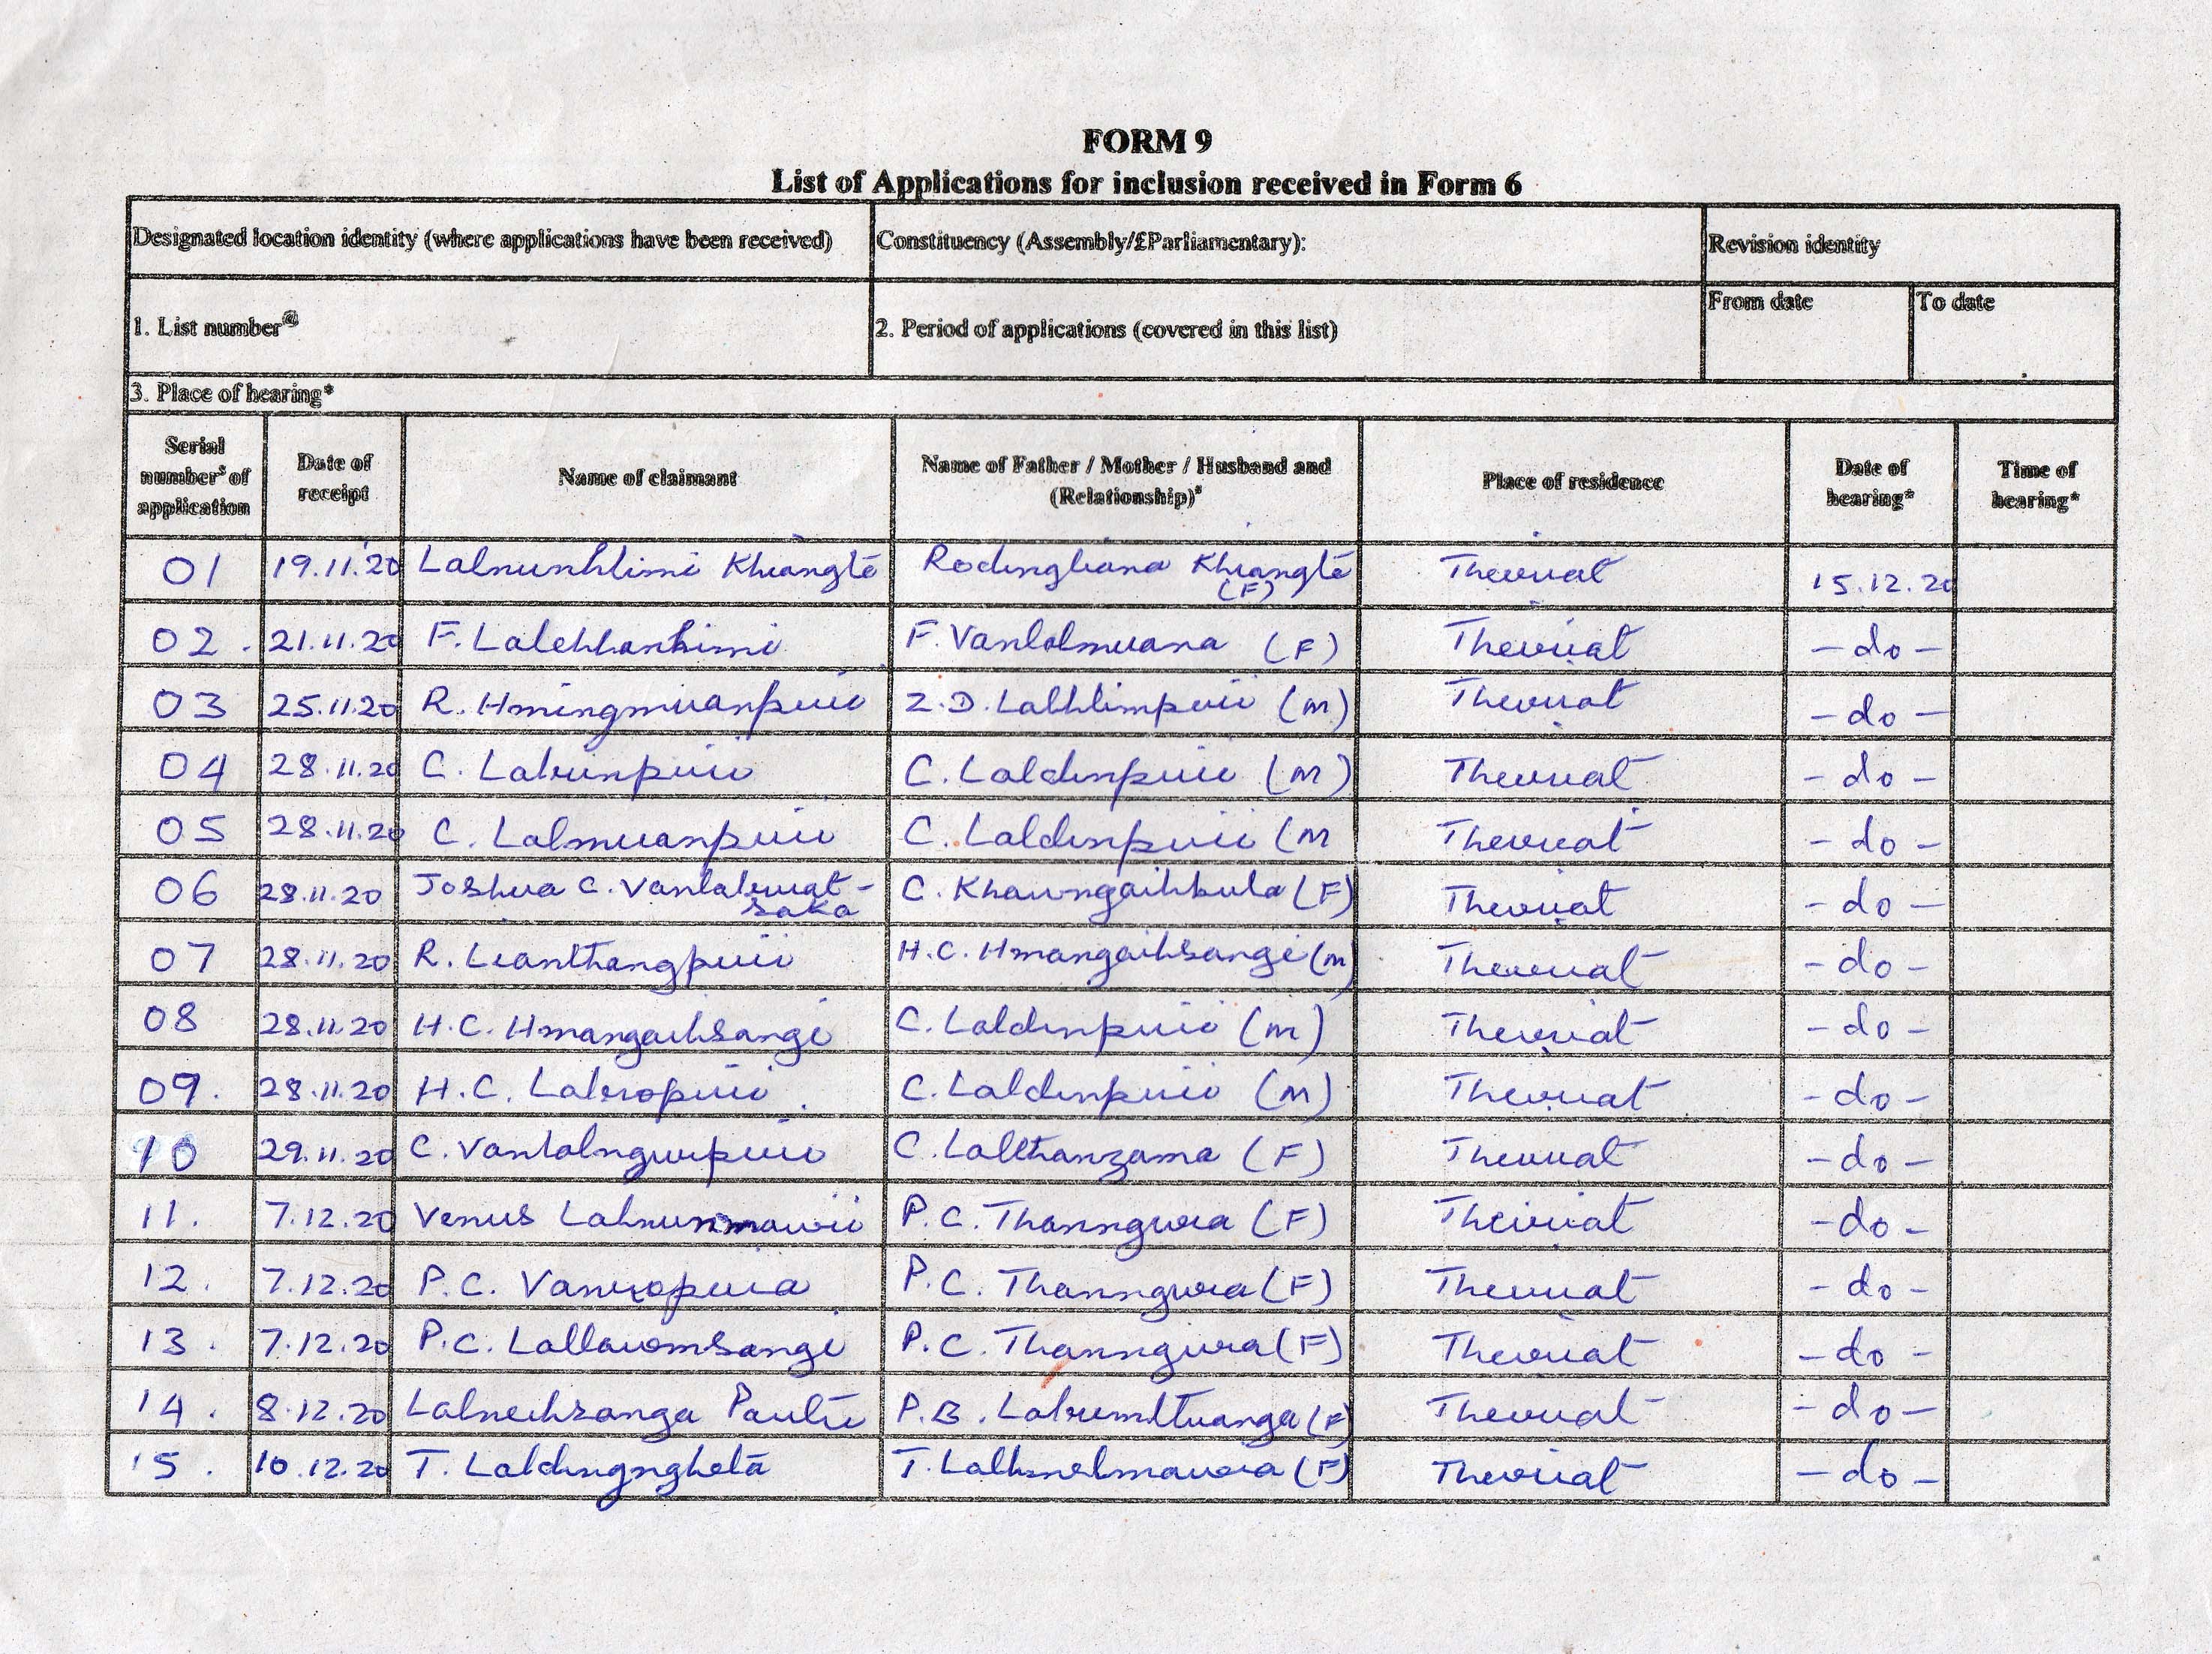 FORM 9
List of Applications for inclusion received in Form 6
Designated location identity (where applications have been received) Constituency (Assembly/£Parliamentary): Revision identity
1. List number@ 2. Period of applications (covered in this list) From date To date
3. Place of hearing*
Serial number$ of application Date of receipt Name of claimant Name of Father / Mother / Husband and (Relationship)# Place of residence Date of hearing* Time of hearing*
01 19.11.20 Lalnunhlimi Khiangte Rodingliana Khiangte (F) Theiriat 15.12.20
02. 21.11.20 F. Lalchhanhimi F. Vanlalmuana (F) Theiriat - do -
03 25.11.20 R. Hmingmuanpuii Z.D. Lalhlimpuii (M) Theiriat - do -
04 28.11.20 C. Lalrinpuii C. Laldinpuii (M) Theiriat - do -
05 28.11.20 C. Lalmuanpuii C. Laldinpuii (M Theiriat - do -
06 28.11.20 Joshua C. Vanlalruat-saka C. (F) Theiriat - do -
07 28.11.20 R. Lianthangpuii H.C. Hmangaihsangi (M) Theiriat - do -
08 28.11.20 H.C. Hmangaihsangi C. Laldinpuii (M) Theiriat - do -
09. 28.11.20 H.C. Lalropuii C. Laldinpuii (M) Theiriat - do -
10 29.11.20 C. Vanlalngurpuii C. Lalthanzama (F) Theiriat - do -
11. 7.12.20 Venus Lalnunmawii P.C. Thanngura (F) Theiriat - do -
12. 7.12.20 P.C. Vanropuia P.C. Thanngura (F) Theiriat - do -
13. 7.12.20 P.C. Lallawmsangi P.C. Thanngura (F) Theiriat - do -
14. 8.12.20 Lalneihsanga Pautu P.B. (F) Theiriat - do -
15. 10.12.20 T. Laldingngheta T. (F) Theiriat - do -